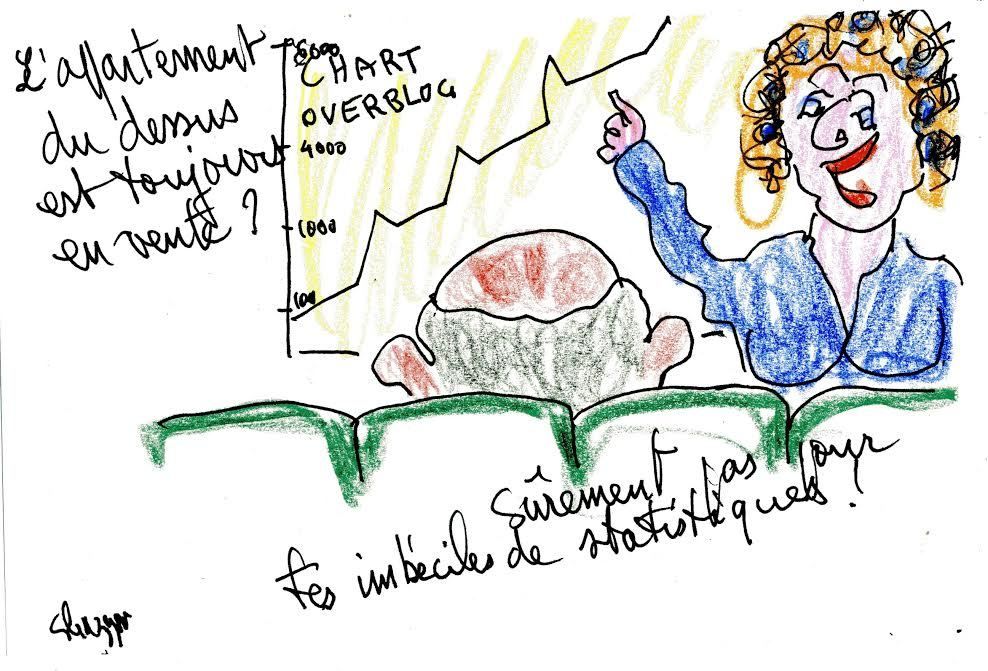 L'appartement
du dessus
est toujours
en vente ?
5000
CHART
OVERBLOG
4000
1000
100
Sûrement pas pour
tes imbéciles de statistiques !